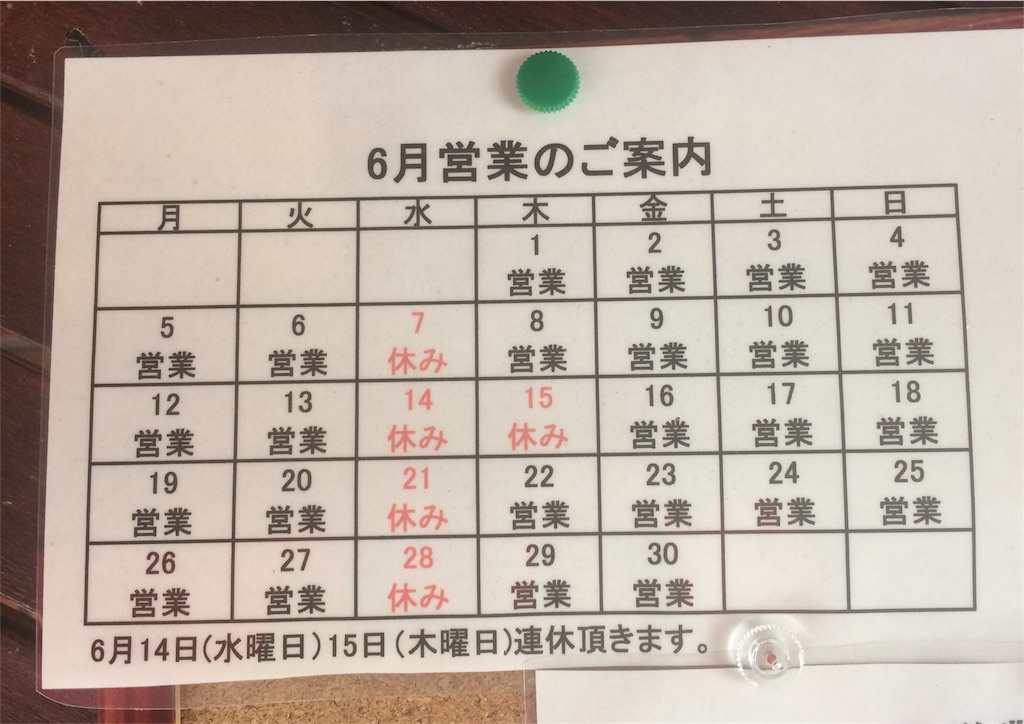 6月営業のご案内
月 火 水 木 金 土 日
1 2 3 4
営業 営業 営業 営業
5 6 7 8 9 10 11
営業 営業 休み 営業 営業 営業 営業
12 13 14 15 16 17 18
営業 営業 休み 休み 営業 営業 営業
19 20 21 22 23 24 25
営業 営業 休み 営業 営業 営業 営業
26 27 28 29 30
営業 営業 休み 営業 営業
6月14日(水曜日)15日(木曜日)連休頂きます。